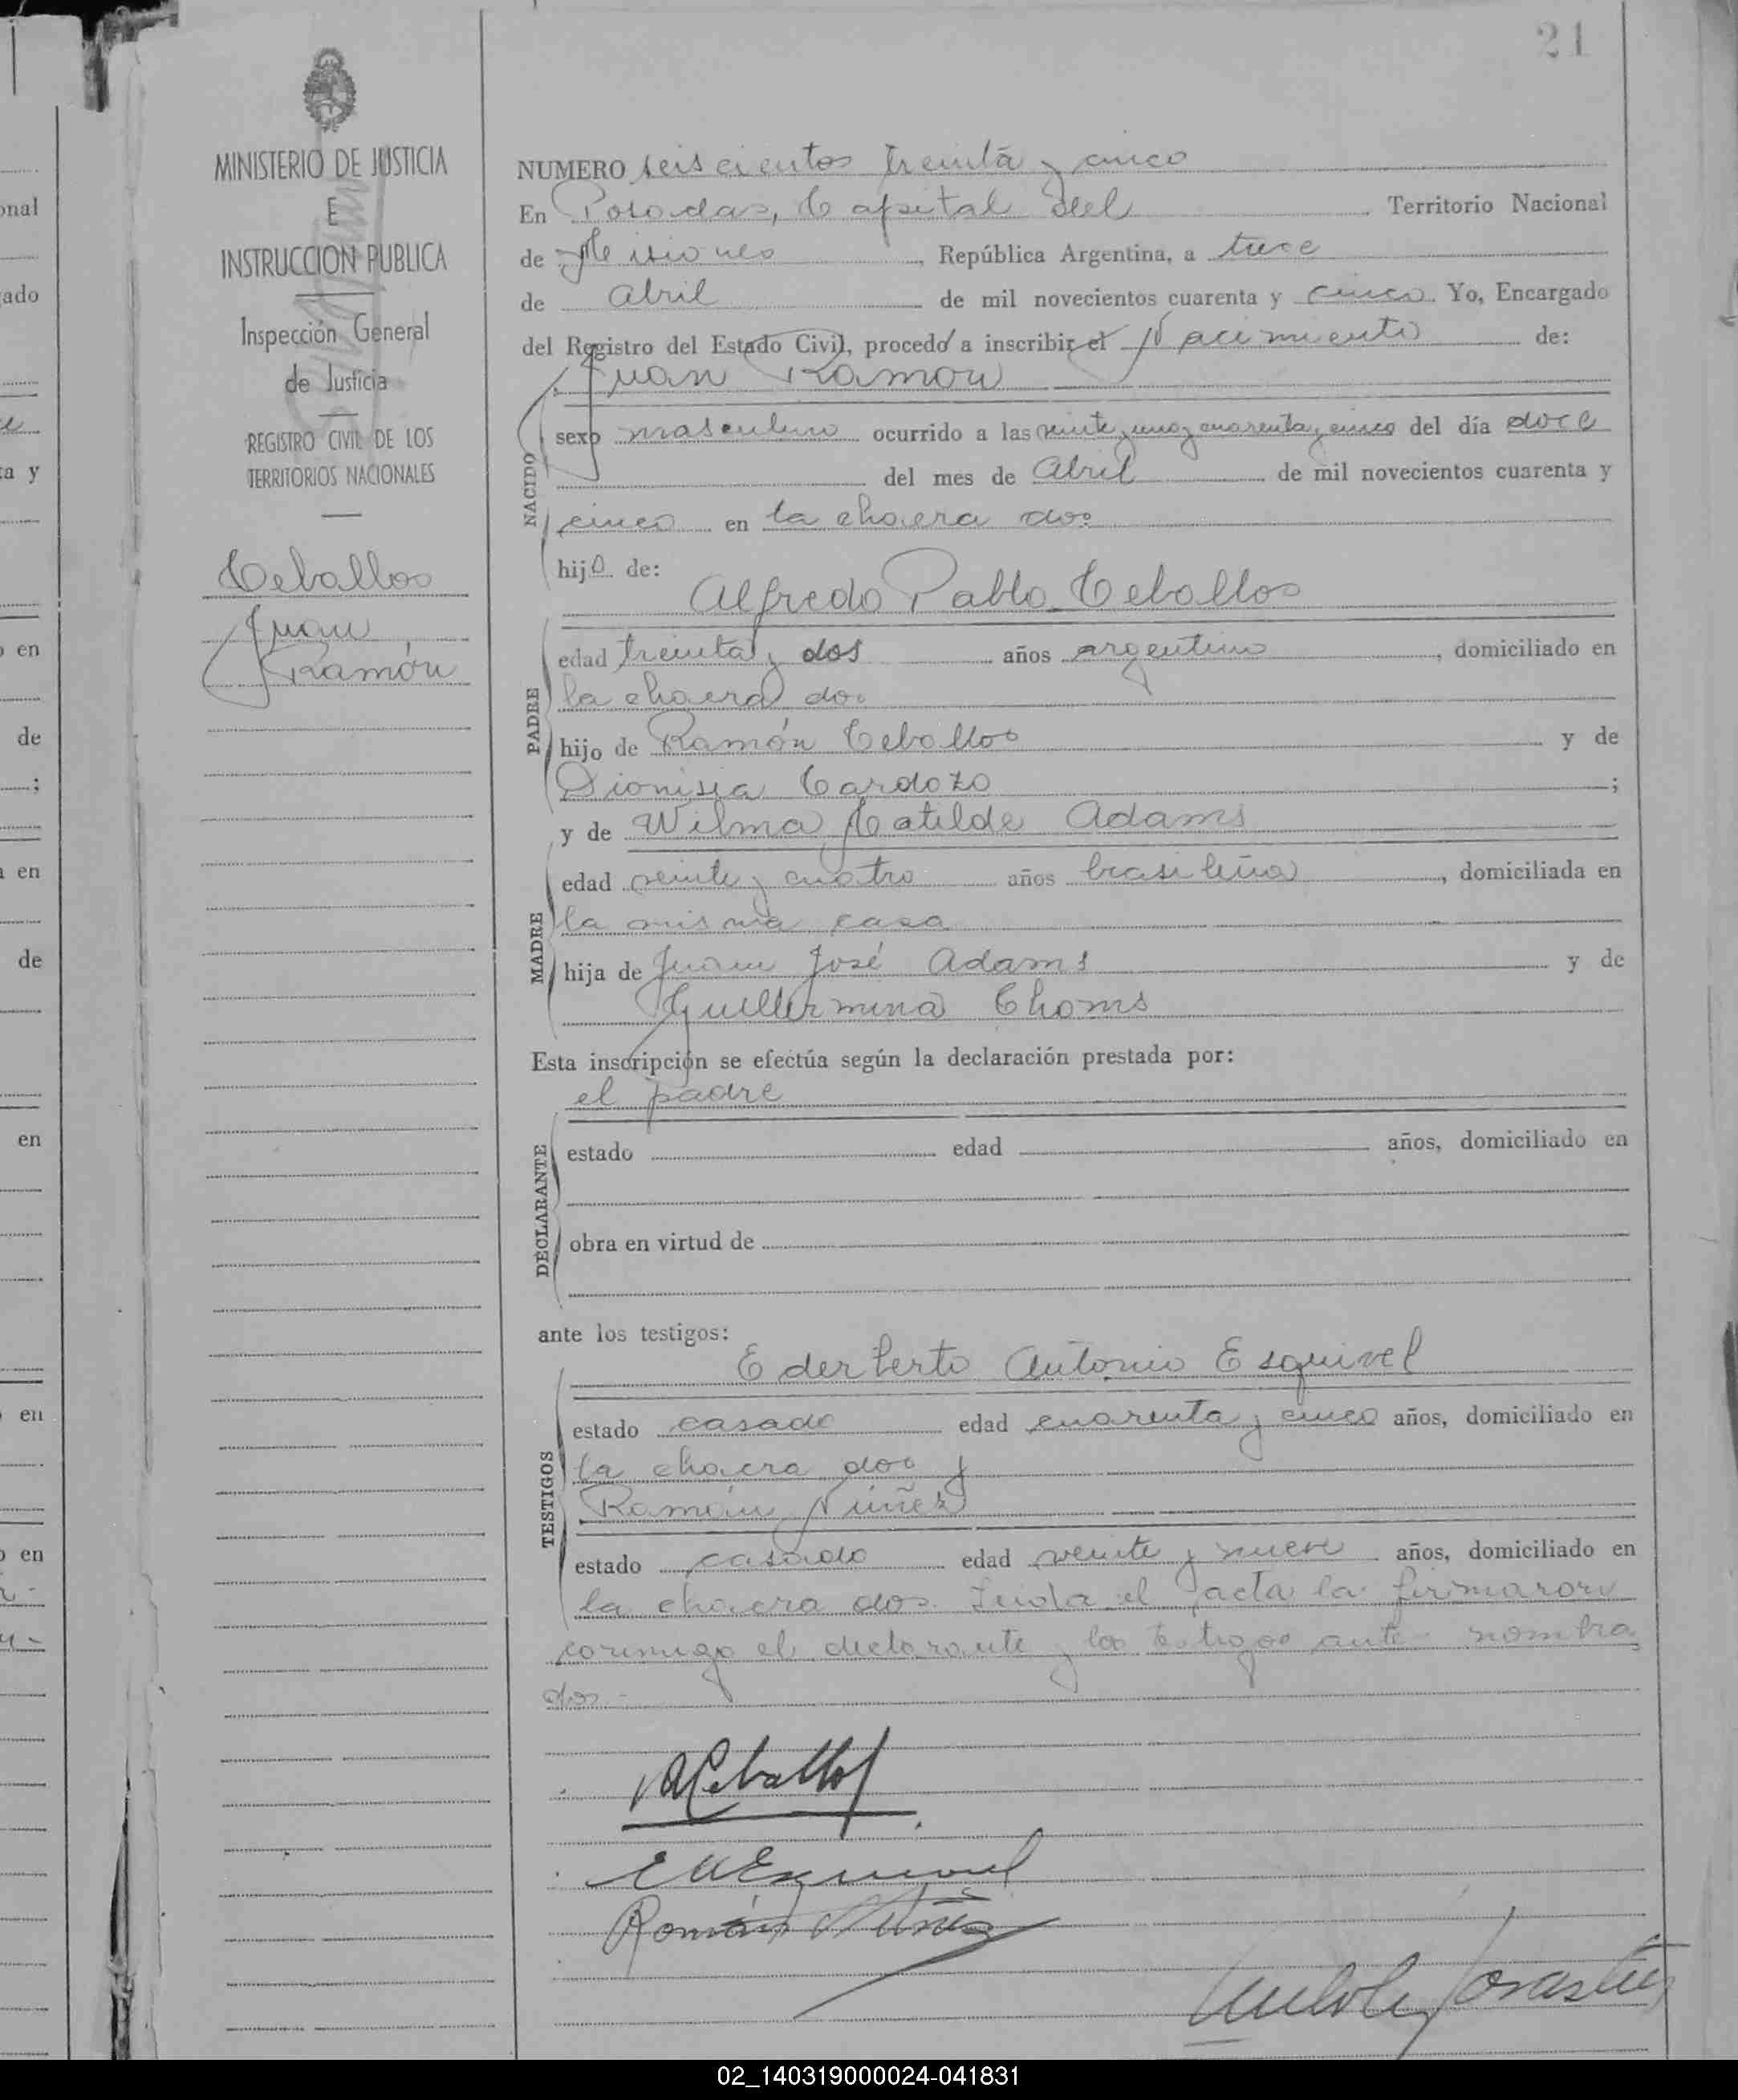 21
MINISTERIO DE JUSTICIA
E
INSTRUCCION PUBLICA
Inspección General
de Justicia
REGISTRO CIVIL DE LOS
TERRITORIOS NACIONALES
Ceballos
Juan
Ramón
NUMERO seiscientos treinta y cinco
En Posadas, Capital del Territorio Nacional
de Misiones, República Argentina, a trece
de Abril de mil novecientos cuarenta y cinco. Yo, Encargado
del Registro del Estado Civil, procedo a inscribir el Nacimiento de:
Juan Ramon
NACIDO
sexo masculino ocurrido a las veinte y uno y cuarenta y cinco del día doce
del mes de Abril de mil novecientos cuarenta y
cinco en la chacra dos
hijo de:
Alfredo Pablo Ceballos
PADRE
edad treinta y dos años argentino, domiciliado en
la chacra dos
hijo de Ramón Ceballos y de
Dionisia Cardozo;
y de Wilma Catilde Adams
MADRE
edad veinte y cuatro años brasileña, domiciliada en
la misma casa
hija de Juan José Adams y de
Guillermina Choms
Esta inscripción se efectúa según la declaración prestada por:
el padre
DECLARANTE
estado edad años, domiciliado en
obra en virtud de
ante los testigos:
Ederberto Antonio Esquivel
TESTIGOS
estado casado edad cuarenta y cinco años, domiciliado en
la chacra dos y
Ramón Núñez
estado casado edad veinte y nueve años, domiciliado en
la chacra dos. Leida el acta la firmaron
conmigo el declarante y los testigos ante nombra
dos-
ACeballos
EAEsquivel
Román Núñez
02_140319000024-041831